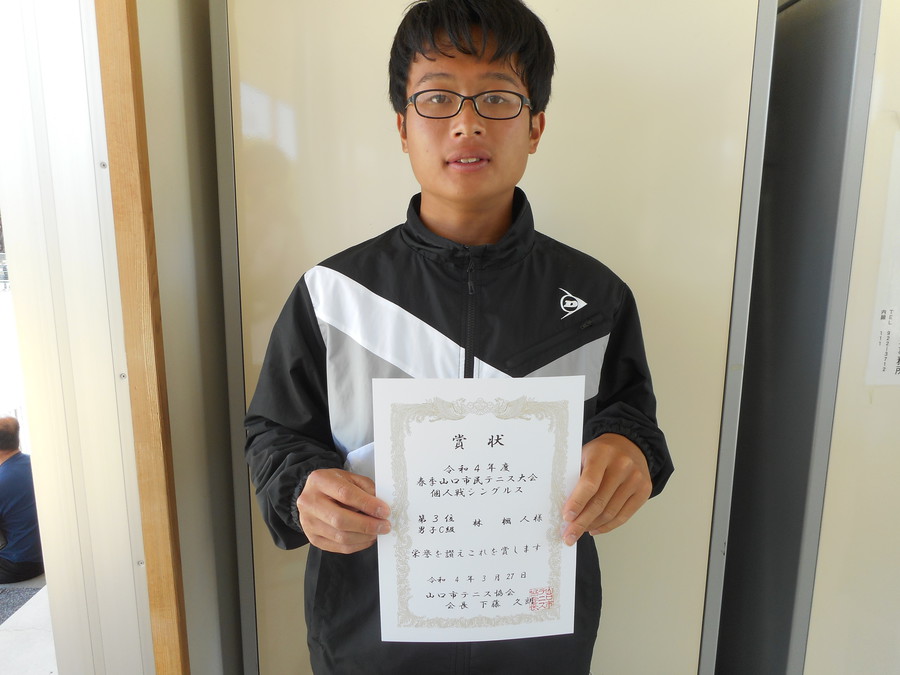 賞状
令和4年度
春季山口市民テニス大会
個人戦シングルス
第3位
男子C級
林 楓人様
栄誉を讃えこれを賞します
令和4年3月27日
山口市テニス協会
会長 下藤 文朗